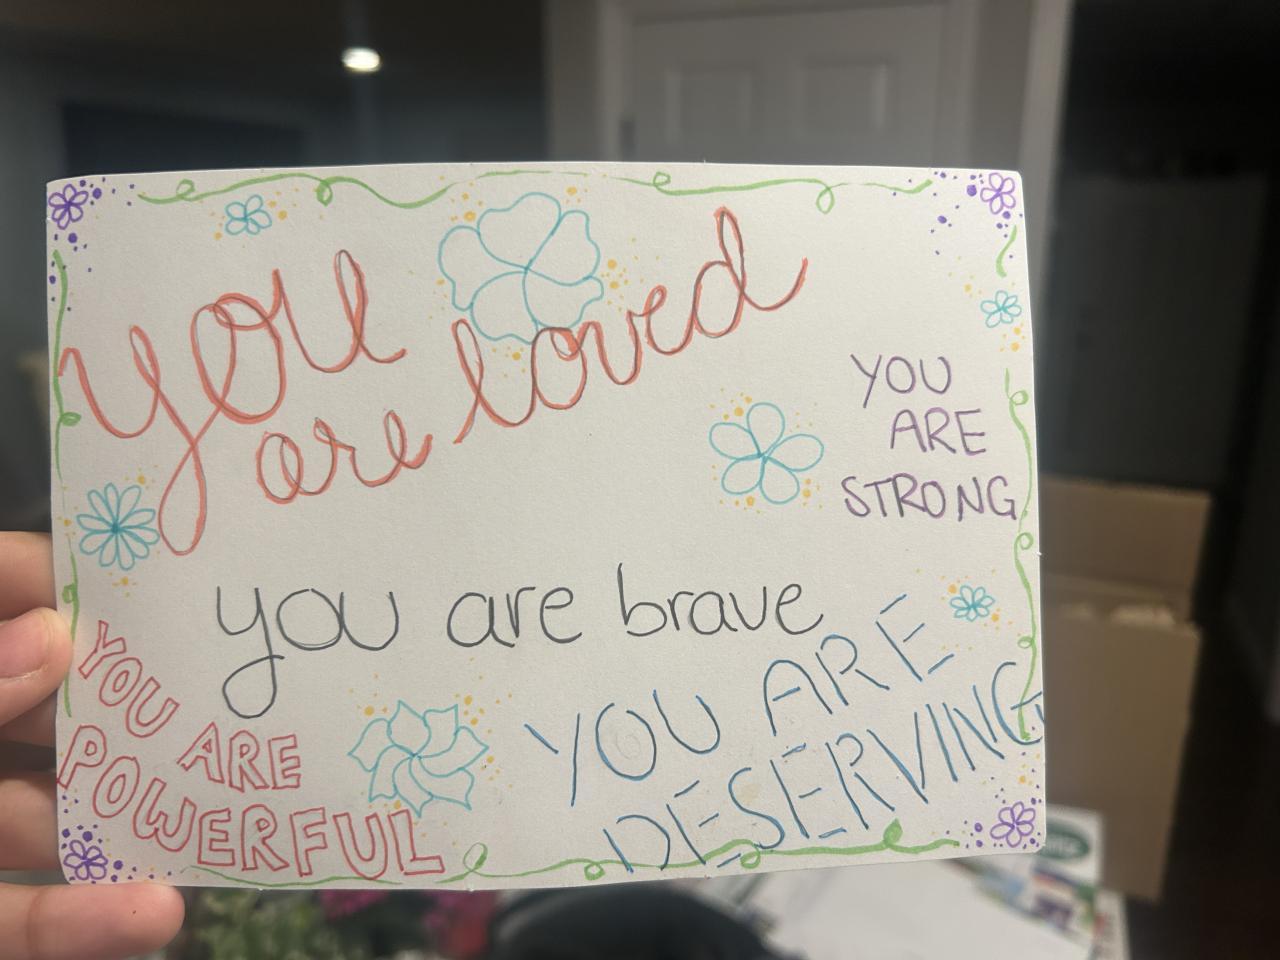 you
are loved
YOU
ARE
STRONG
you are brave
YOU
ARE
POWERFUL
YOU ARE
DESERVING